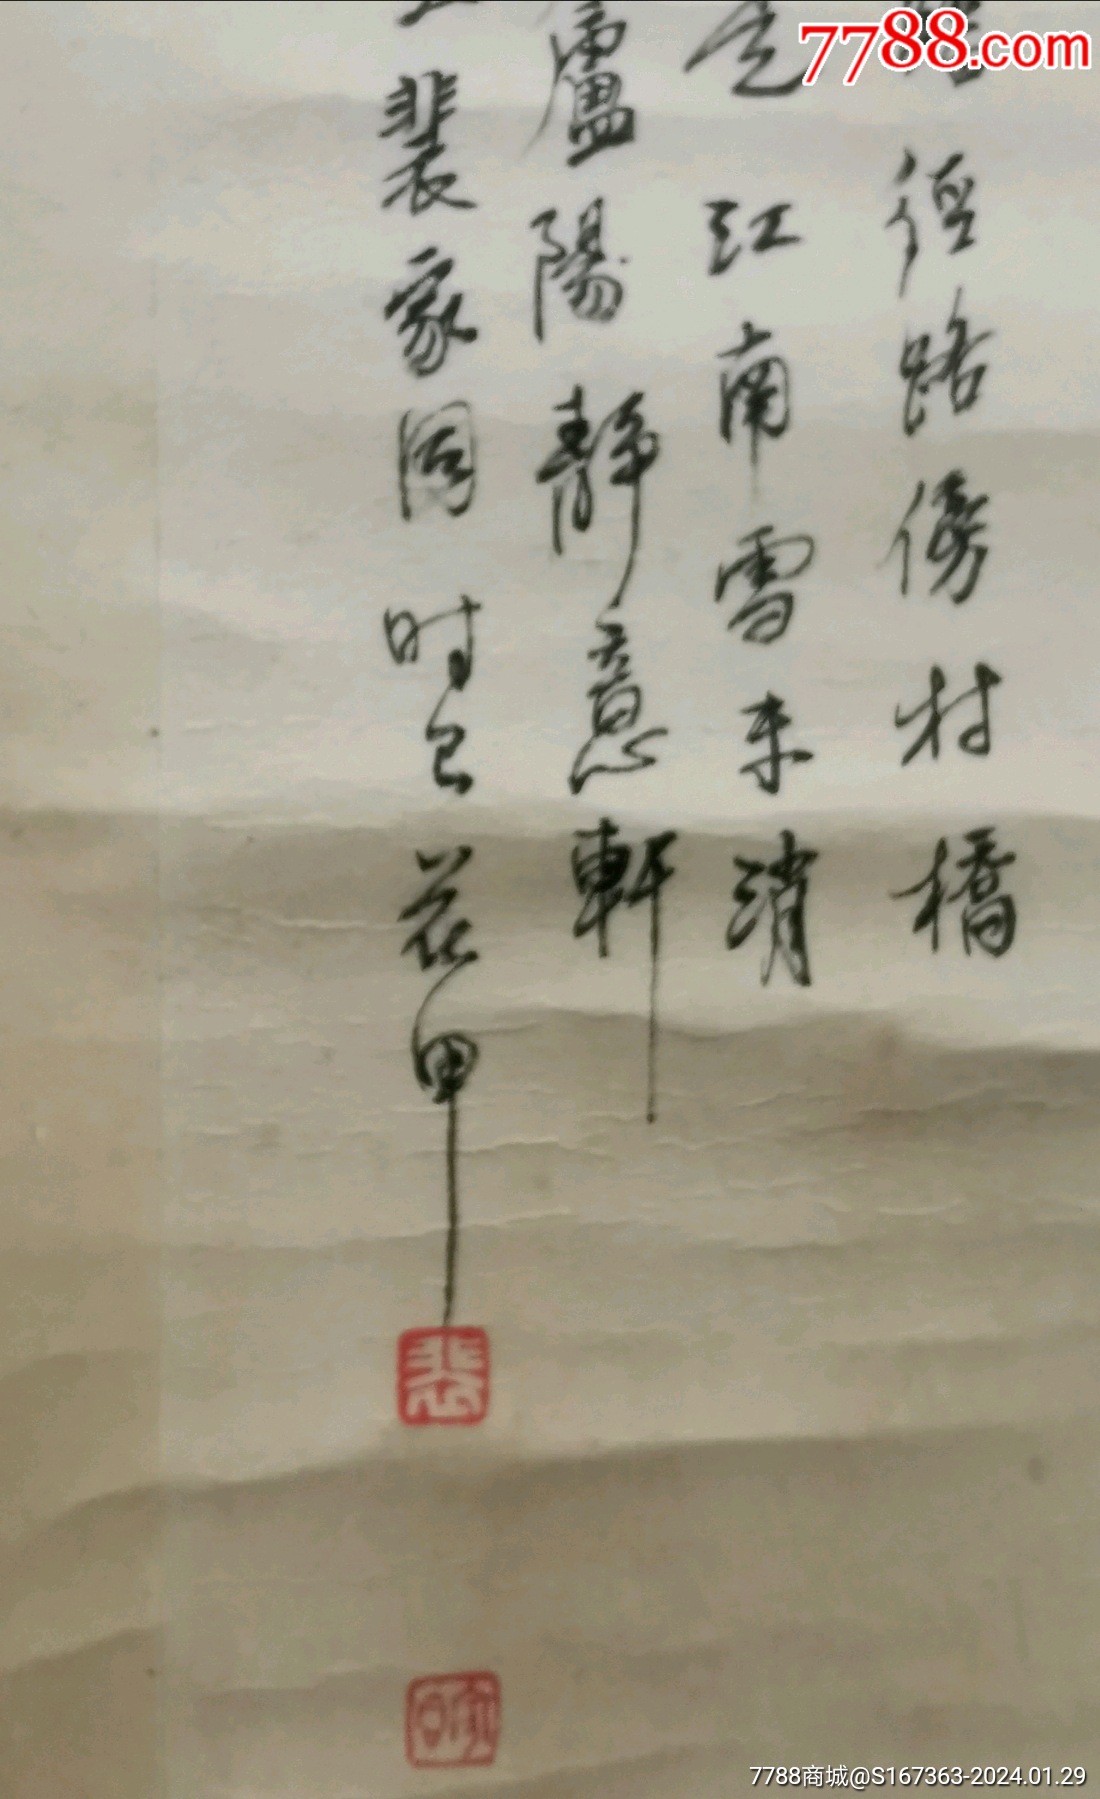 7788.com
径路傍村橋
江南雪未消
廬陽静意軒
裴家同时已花甲
裴
7788商城@S167363-2024.01.29